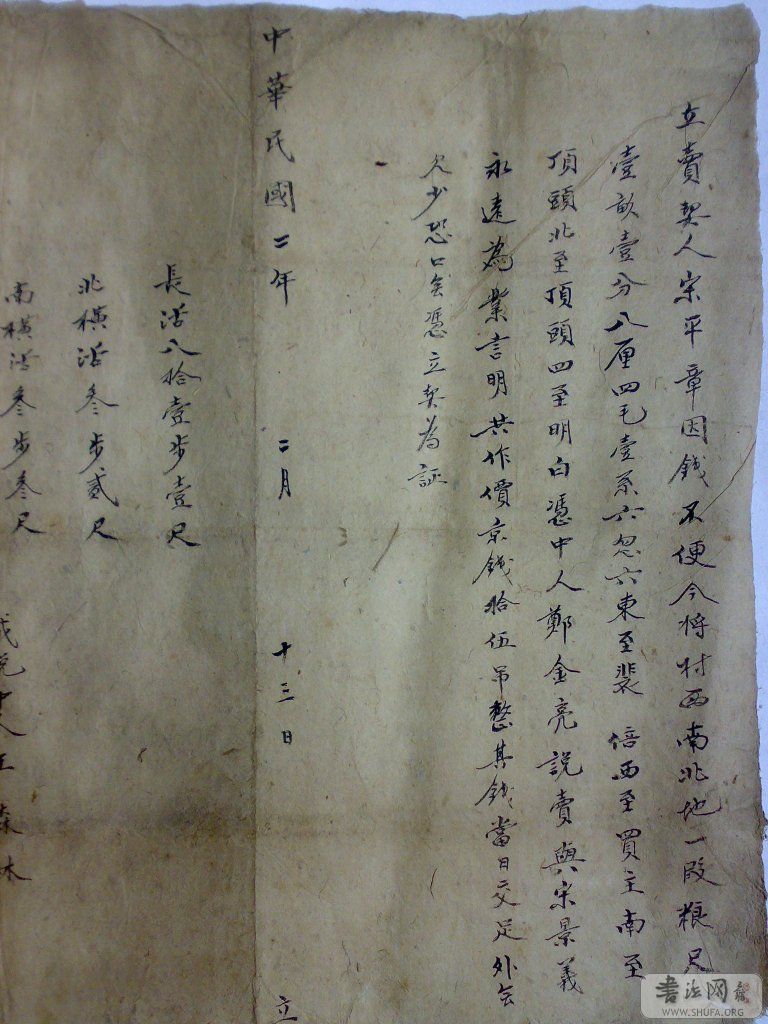 立賣契人宋平章因錢不便今将村西南北地一段粮尺
壹畝壹分八厘四毛壹系六忽六東至裴 倍西至買主南至
頂頭北至頂頭四至明白憑中人鄭金亮説賣與宋景義
永遠為業言明共作價京錢拾伍吊整其錢當日交足外会
欠少恐口会憑立契為証
中華民國二年 二月 十三日 立
長活八拾壹步壹尺
北横活叁步貳尺
南横活叁步叁尺
成説中人王 森木
書法网
WWW.SHUFA.ORG